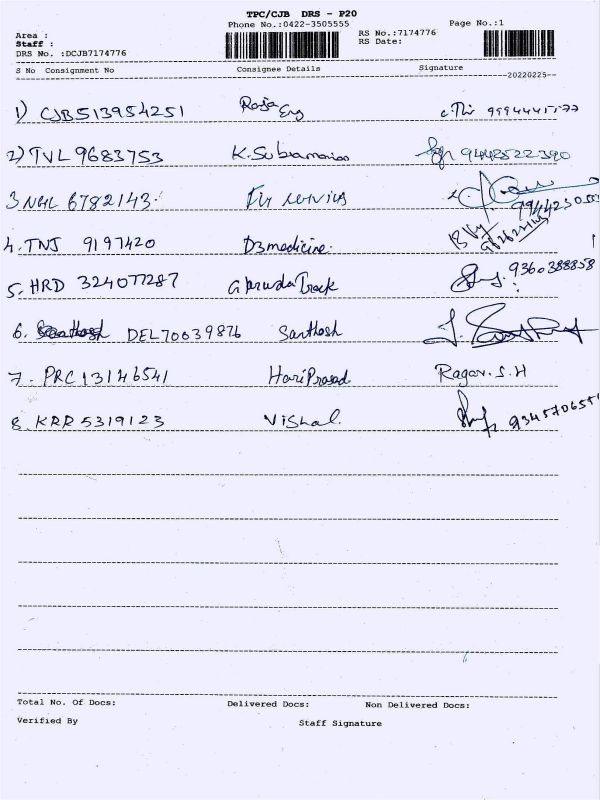 TPC/CJB DRS - P20
Phone No.:0422-3505555
Page No.:1
Area :
RS No.:7174776
Staff :
RS Date:
DRS No. :DCJB7174776
S No Consignment No Consignee Details Signature
20220225
1) CJB513954251 Raja Eng
2) TVL 9683753 K. Subramanian 9448522390
3 NGL 6782143.
4. TNJ 9197420 D3medicine.
5. HRD 324077287 Garuda Track 9360388858
6. Santhosh DEL70039876 Santhosh
7. PRC 13146541 HariPrasad Ragav.S.H
8. KRR 5319123 Vishal.
Total No. Of Docs: Delivered Docs: Non Delivered Docs:
Verified By Staff Signature